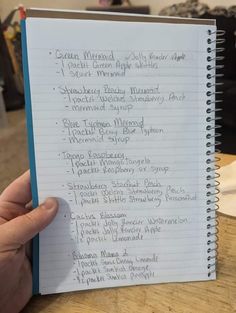 Green Mermaid w/Jolly Rancher Apple
- 1 packet Green Apple Skittles
- 1 squirt Mermaid
Strawberry Peachy Mermaid
- 1 packet Welches Strawberry Peach
- mermaid Syrup
Blue Typhoon Mermaid
- 1 packet Berry Blue Typhoon
- Mermaid Syrup
Tango Raspberry
- 1 packet Mango Tango
- 1 raspberry or syrup
Strawberry Starfruit Peach
- 1 packet Strawberry Peach
- 1 packet Skittles Strawberry
Cactus Blossom
- 1 packet Jolly Rancher Watermelon
- 1 packet Jolly Rancher Apple
- 1 packet Lemonade
Bahama Mama 2
- 1 packet Lemonade
- 1 packet Sunkist Orange
- 1 packet Sunkist Pineapple